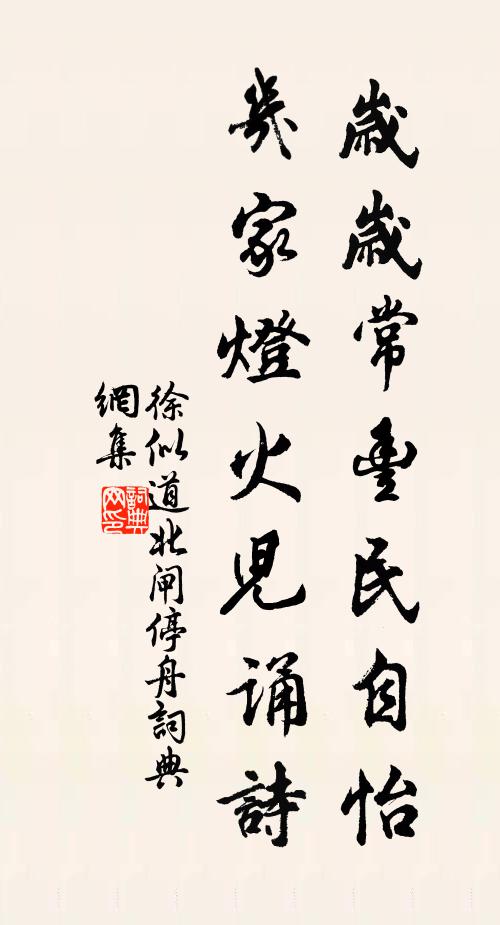 歲歲常豐民自怡
幾家燈火兒誦詩
徐似道北閘停舟詞典
網集
詞典
网印